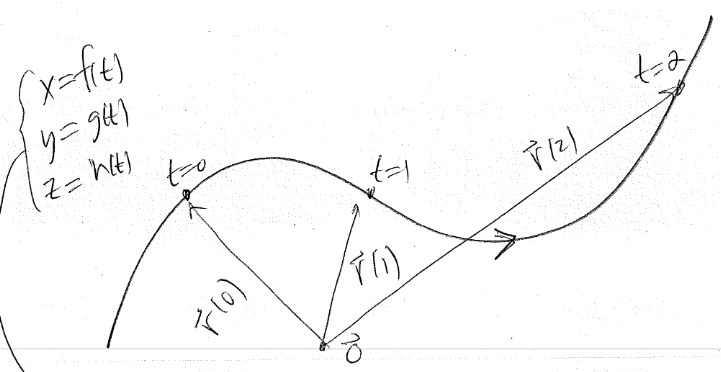 x=f(t)
y=g(t)
z=h(t)
t=0
t=1
t=2
r⃗(0)
r⃗(1)
r⃗(2)
0⃗